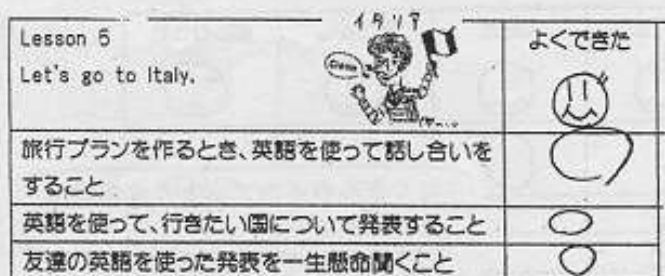 イタリア
Lesson 6
Let's go to Italy.
よくできた
旅行プランを作るとき、英語を使って話し合いを
すること
英語を使って、行きたい国について発表すること
友達の英語を使った発表を一生懸命聞くこと